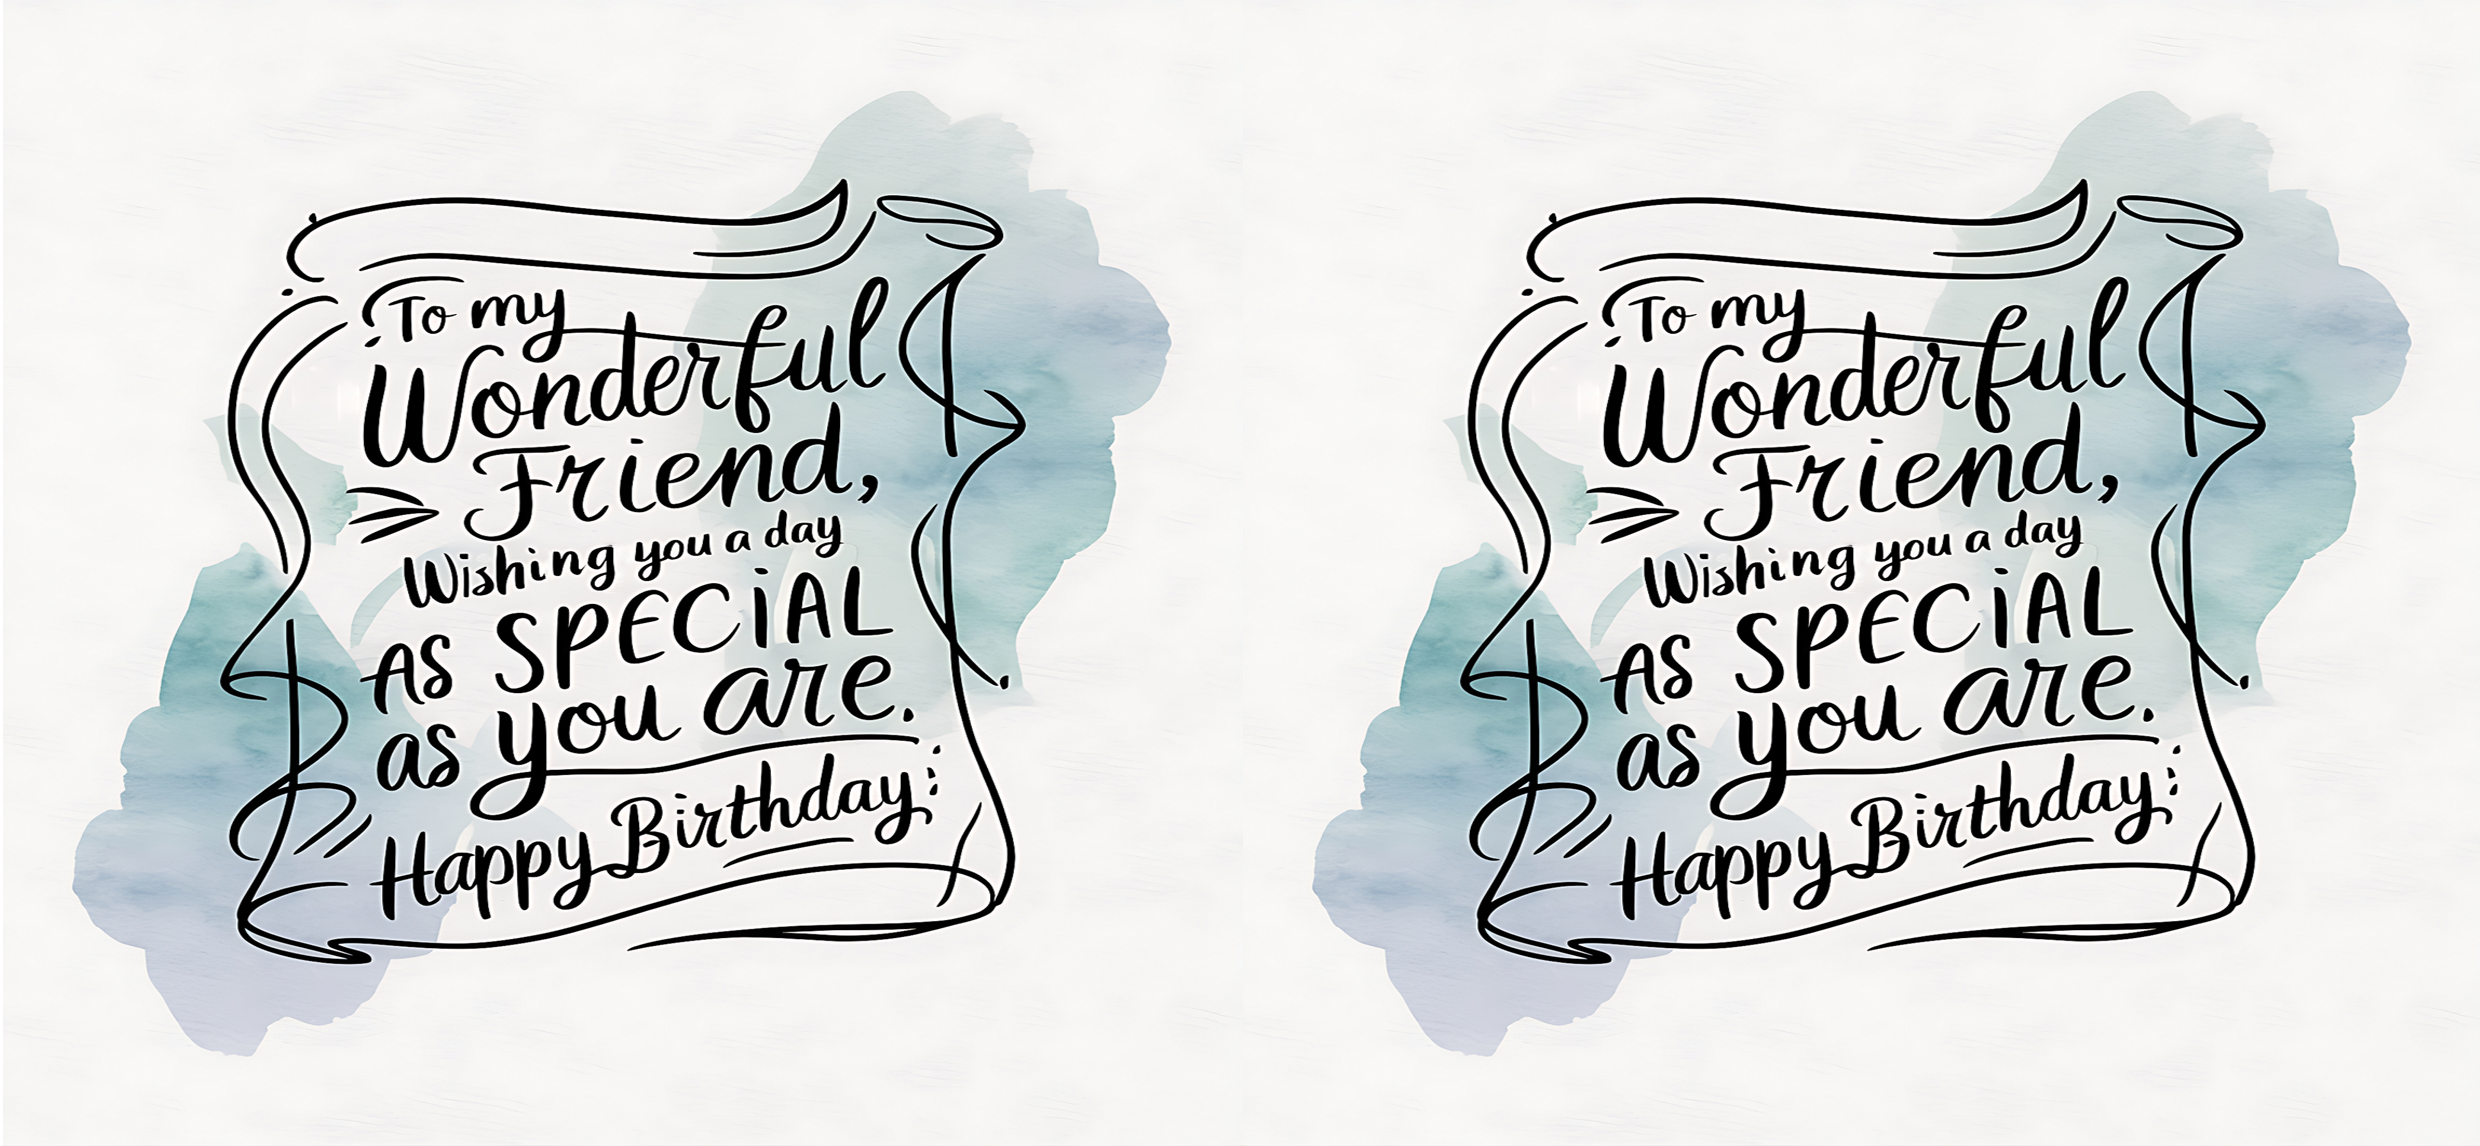 To my
Wonderful
Friend,
Wishing you a day
AS SPECiAL
as you are.
Happy Birthday
To my
Wonderful
Friend,
Wishing you a day
AS SPECiAL
as you are.
Happy Birthday